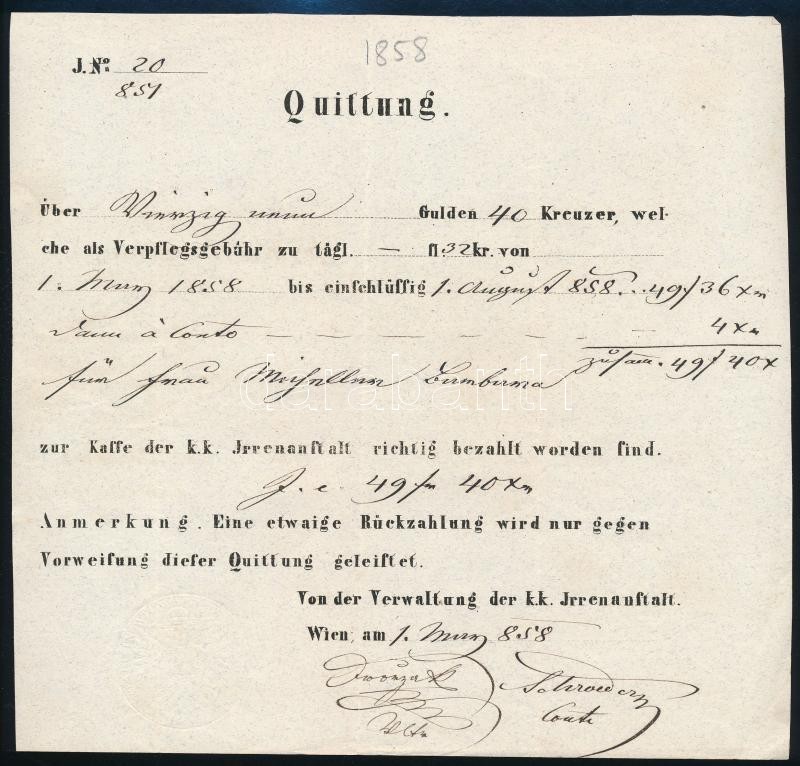 1858
J. No. 20
851
Quittung.
Über Vierzig neun Gulden 40 Kreuzer, wel-
che als Verpflegsgebühr zu tägl. — fl 32 kr. von
1. März 1858 bis einschlüssig 1. August 858 .. 49 f 36 xr
Dann à Conto — — — — — — 4 xr
zusam. 49 f 40 x
für Frau
zur Kasse der k.k. Irrenanstalt richtig bezahlt worden sind.
49 fr 40 xr
Anmerkung. Eine etwaige Rückzahlung wird nur gegen
Vorweisung dieser Quittung geleistet.
Von der Verwaltung der k.k. Irrenanstalt.
Wien, am 1. März 858
Dworzak Schroeder
darabanth